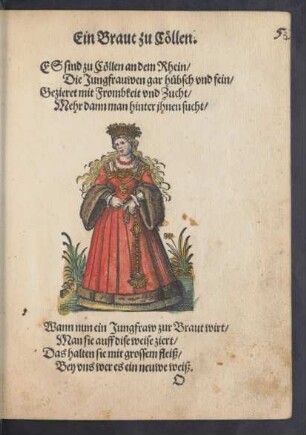 Ein Braut zu Cöllen.
ES sind zu Cöllen an dem Rhein/
Die Jungfrauwen gar hübsch vnd fein/
Gezieret mit Frombkeit vnd Zucht/
Mehr dann man hinter jhnen sucht/
Wann nun ein Jungfraw zur Braut wirt/
Man sie auff dise weise ziert/
Das halten sie mit grossem fleiß/
Bey vns wer es ein neuwe weiß.
O